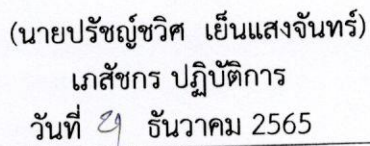 (นายปรัชญ์ชวิศ เย็นแสงจันทร์)
เภสัชกร ปฏิบัติการ
วันที่ ธันวาคม 2565